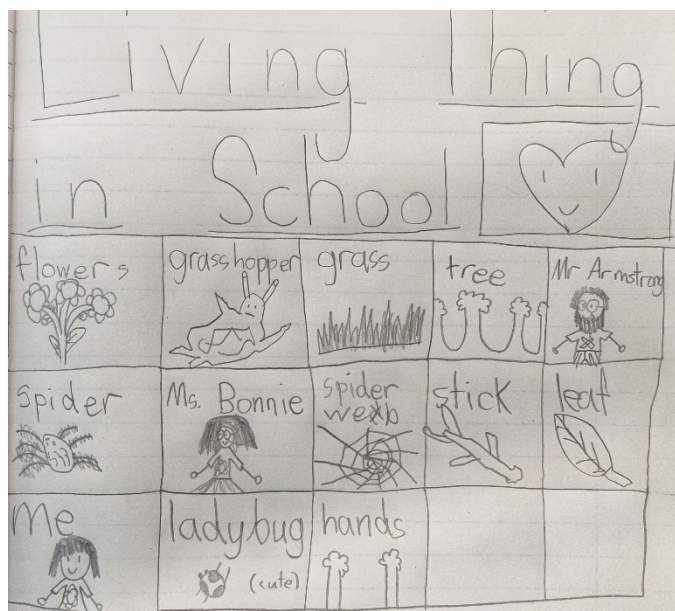 Living Thing
in School
flowers grasshopper grass tree Mr Armstrong
spider Ms. Bonnie spider stick leaf
web
Me ladybug hands
(cute)